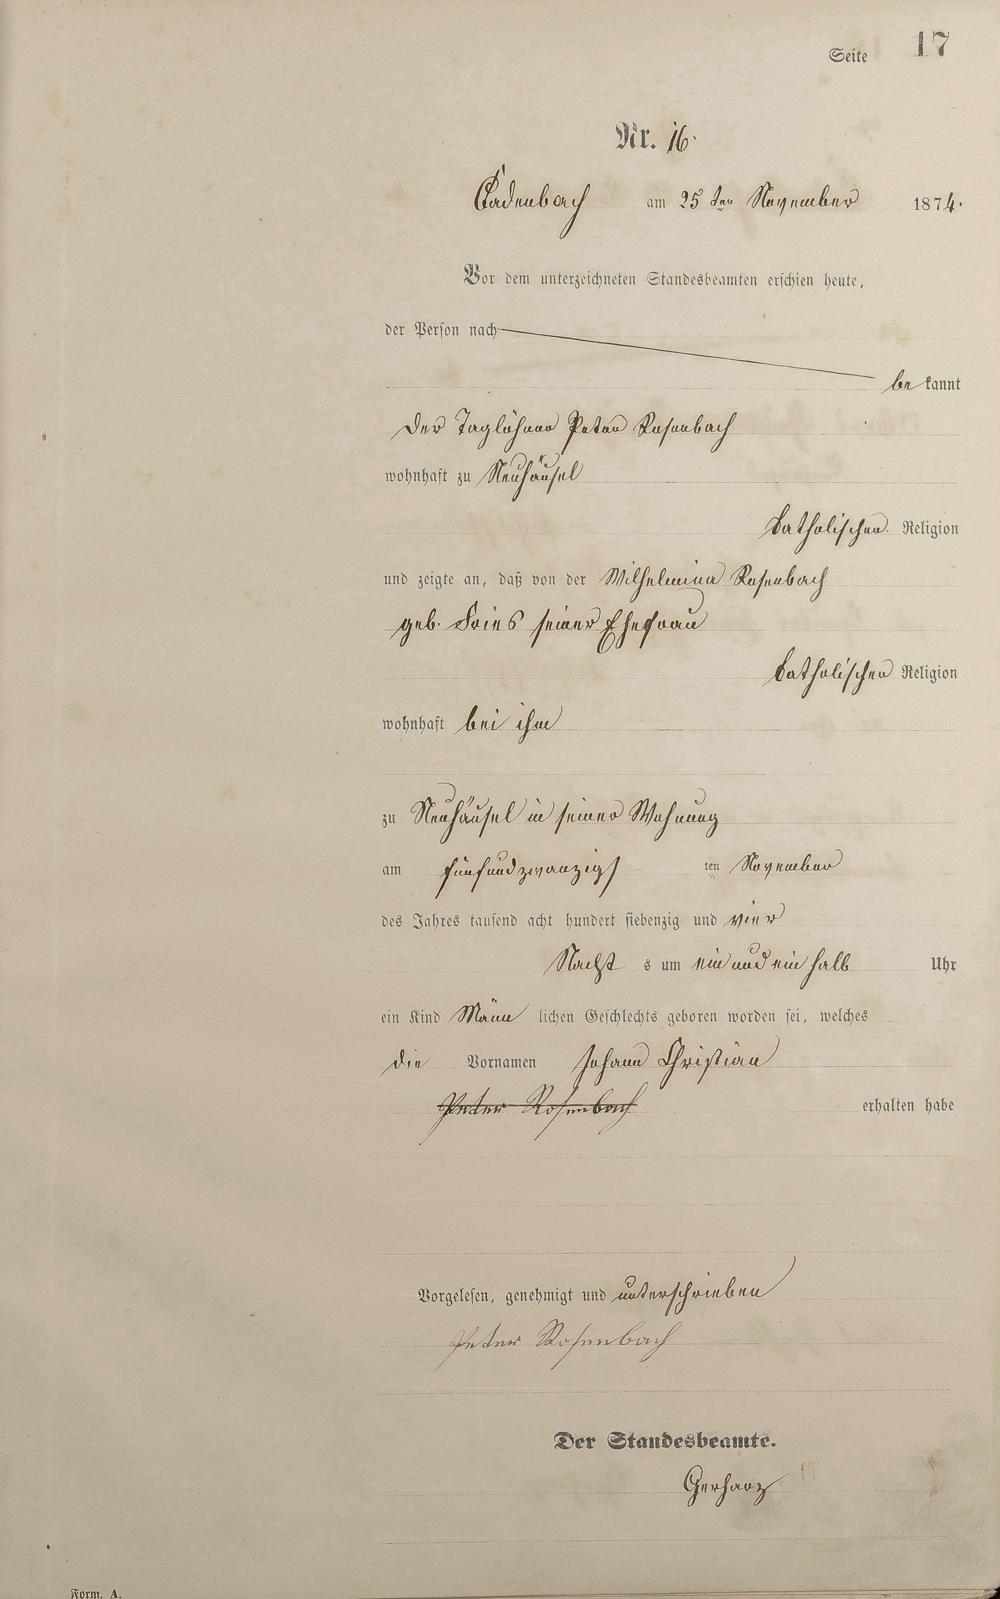 Seite 17
Nr. 16.
Cadenbach am 25 ten November 1874.
Vor dem unterzeichneten Standesbeamten erschien heute,
der Person nach
be kannt
der Taglöhner Peter Rosenbach
wohnhaft zu Neuhäusel
katholischen Religion
und zeigte an, daß von der Wilhelmina Rosenbach
geb. Fries seiner Ehefrau
katholischen Religion
wohnhaft bei ihm
zu Neuhäusel in seiner Wohnung
am fünfundzwanzigs ten November
des Jahres tausend acht hundert siebenzig und vier
Nacht s um ein und ein halb Uhr
ein Kind Männ lichen Geschlechts geboren worden sei, welches
die Vornamen Johann Christian
Peter Rosenbach erhalten habe
Vorgelesen, genehmigt und unterschrieben
Peter Rosenbach
Der Standesbeamte.
Gerharz
Form. A.